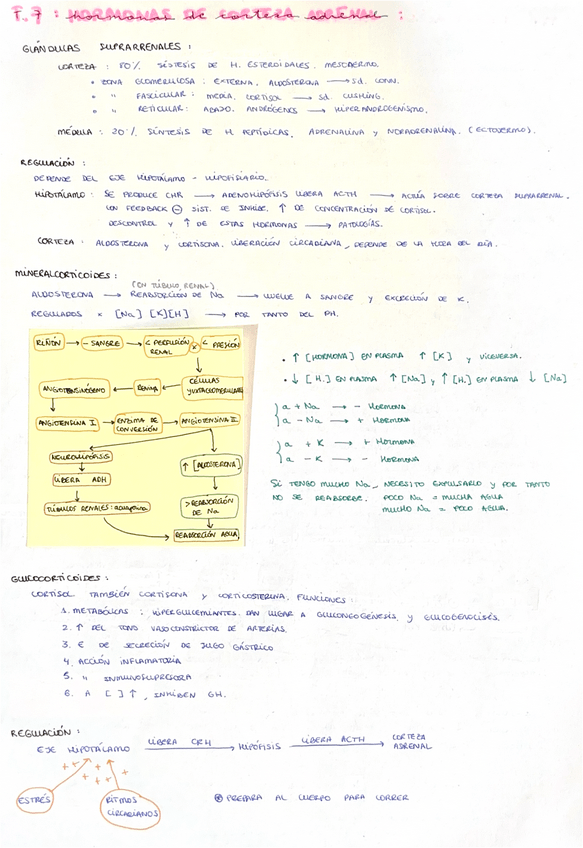 T.7 : HORMONAS DE CORTEZA ADRENAL :
GLÁNDULAS SUPRARRENALES :
CORTEZA : 80% SÍSTESIS DE H. ESTEROIDALES. MESODERMO.
• ZONA GLOMERULOSA : EXTERNA. ALDOSTERONA → SD. CONN.
• " FASCICULAR : MEDIA, CORTISOL → SD. CUSHING.
• " RETICULAR: ABAJO. ANDRÓGENOS → HIPERANDROGENISMO.
MÉDULA : 20% SÍNTESIS DE H PEPTÍDICAS, ADRENALINA Y NORADRENALINA. (ECTODERMO).
REGULACIÓN :
DEPENDE DEL EJE HIPOTÁLAMO - HIPOFISIARIO.
HIPOTÁLAMO : SE PRODUCE CHR → ADENOHIPÓFISIS LIBERA ACTH → ACTÚA SOBRE CORTEZA SUPRARRENAL.
CON FEEDBACK ⊖ SIST. SE INHIBE. ↑ DE CONCENTRACIÓN DE CORTISOL.
DESCONTROL Y ↑ DE ESTAS HORMONAS → PATOLOGÍAS.
CORTEZA : ALDOSTERONA Y CORTISONA. LIBERACIÓN CIRCADIANA, DEPENDE DE LA HORA DEL DÍA.
MINERALCORTICOIDES :
(EN TÚBULO RENAL)
ALDOSTERONA → REABSORCIÓN DE Na → VUELVE A SANGRE Y EXCRECIÓN DE K.
REGULADOS x [Na] [K] [H] → POR TANTO DEL PH.
RIÑÓN → - SANGRE → < PERFUSIÓN RENAL x < PRESIÓN
ANGIOTENSINÓGENO ← RENINA ← CÉLULAS YUXTAGLOMERULARES
ANGIOTENSINA I → ENZIMA DE CONVERSIÓN → ANGIOTENSINA II
NEUROHIPÓFISIS
↑ [ALDOSTERONA]
LIBERA ADH
TÚBULOS RENALES : acuaporina
> REABSORCIÓN DE Na
REABSORCIÓN AGUA
• ↑ [HORMONA] EN PLASMA ↑ [K] Y VICEVERSA.
• ↓ [H.] EN PLASMA ↑ [Na] y ↑ [H.] EN PLASMA ↓ [Na]
a + Na → - HORMONA
a - Na → + HORMONA
a + K → + HORMONA
a - K → - HORMONA
SI TENGO MUCHO Na, NECESITO EXPULSARLO Y POR TANTO
NO SE REABSORBE. POCO Na = MUCHA AGUA
MUCHO Na = POCO AGUA.
GLUCOCORTICOIDES :
CORTISOL TAMBIÉN CORTISONA Y CORTICOSTERONA. FUNCIONES :
1. METABÓLICAS : HIPERGLUCEMIANTES. DAN LUGAR A GLUCONEOGÉNESIS Y GLUCOGENOLISIS.
2. ↑ DEL TONO VASOCONSTRICTOR DE ARTERIAS.
3. E DE SECRECIÓN DE JUGO GÁSTRICO
4. ACCIÓN INFLAMATORIA
5. " INMUNOSUPRESORA
6. A [ ] ↑, INHIBEN GH.
REGULACIÓN :
EJE HIPOTÁLAMO LIBERA CRH → HIPÓFISIS LIBERA ACTH → CORTEZA ADRENAL
++ + + + + +
ESTRÉS
RITMOS CIRCADIANOS
⊛ PREPARA AL CUERPO PARA CORRER